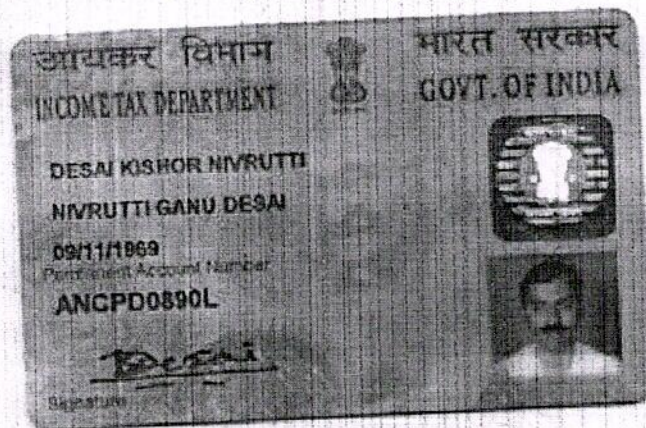 आयकर विभाग
INCOME TAX DEPARTMENT
भारत सरकार
GOVT. OF INDIA
DESAI KISHOR NIVRUTTI
NIVRUTTI GANU DESAI
09/11/1969
Permanent Account Number
ANCPD0890L
Desai
Signature